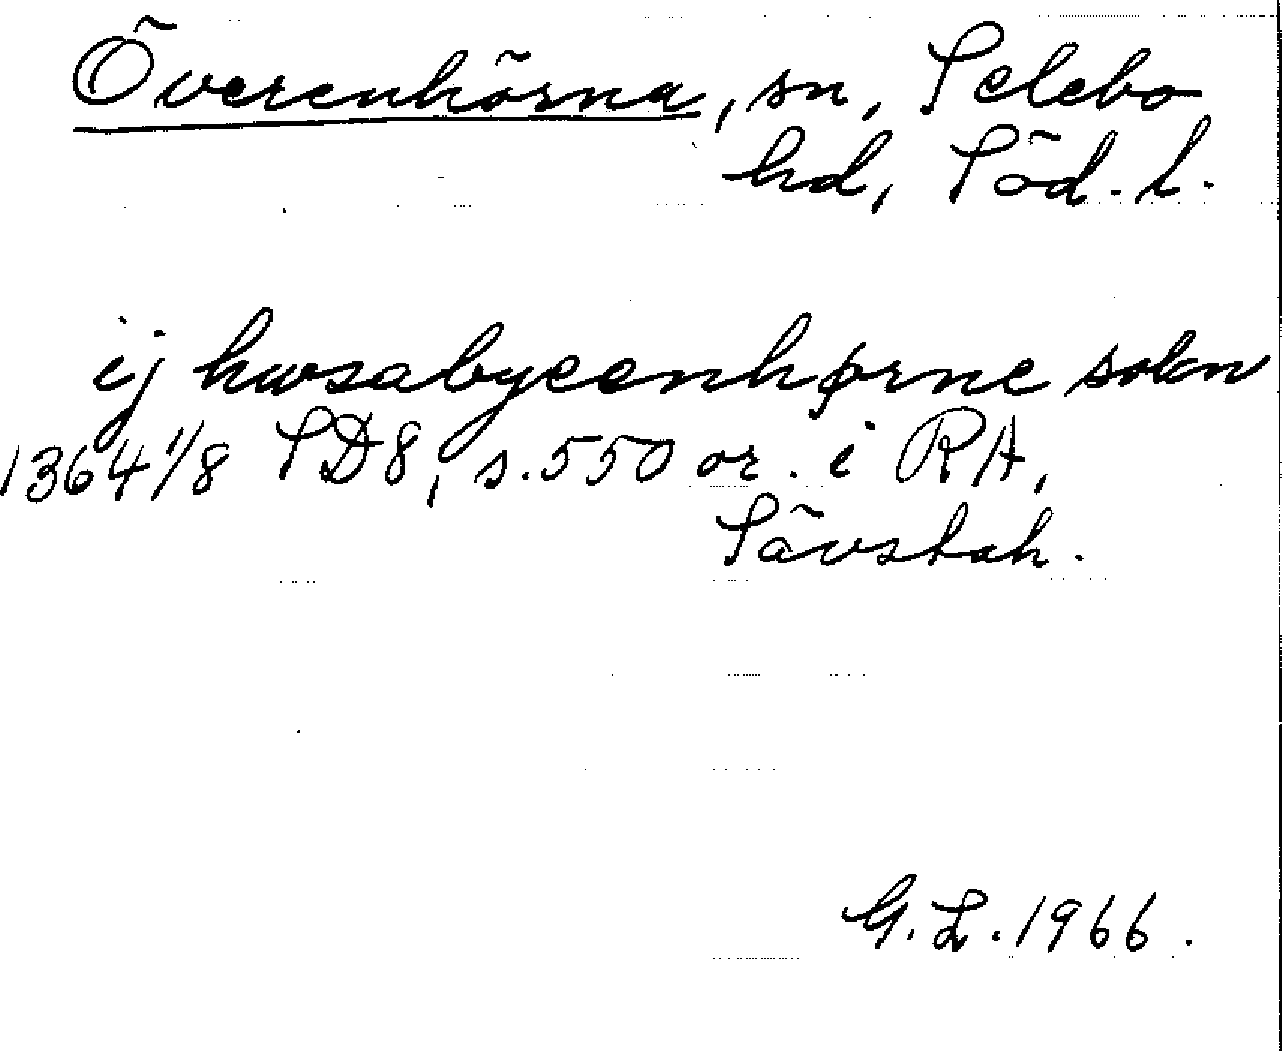 Överenhörna, sn, Selebo
hd, Söd. l.
ij hwsabyeenhørne sokn
1364 1/8 SD8, s. 550 or. i RA,
Sävstah.
G. L. 1966.